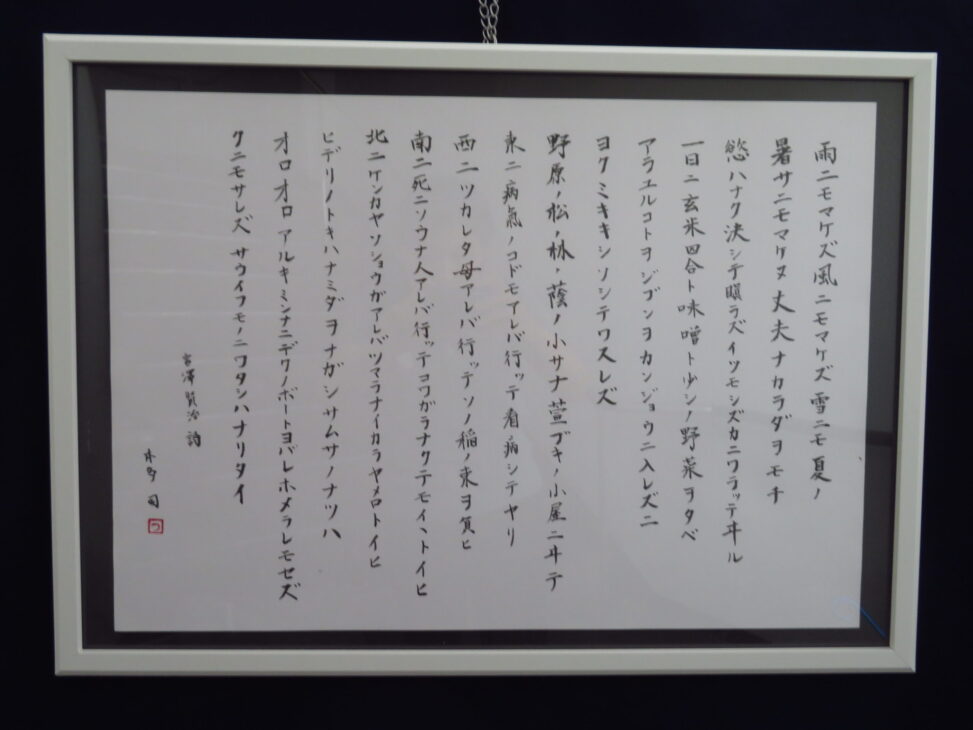 雨ニモマケズ風ニモマケズ雪ニモ夏ノ
暑サニモマケヌ丈夫ナカラダヲモチ
慾ハナク決シテ瞋ラズイツモシズカニワラッテヰル
一日ニ玄米四合ト味噌ト少シノ野菜ヲタベ
アラユルコトヲジブンヲカンジョウニ入レズニ
ヨクミキキシソシテワスレズ
野原ノ松ノ林ノ蔭ノ小サナ萱ブキノ小屋ニヰテ
東ニ病氣ノコドモアレバ行ッテ看病シテヤリ
西ニツカレタ母アレバ行ッテソノ稲ノ束ヲ負ヒ
南ニ死ニソウナ人アレバ行ッテコワガラナクテモイヽトイヒ
北ニケンカヤソショウガアレバツマラナイカラヤメロトイヒ
ヒデリノトキハナミダヲナガシサムサノナツハ
オロオロアルキミンナニデクノボートヨバレホメラレモセズ
クニモサレズ サウイフモノニワタシハナリタイ
宮澤賢治 詩
本多 司